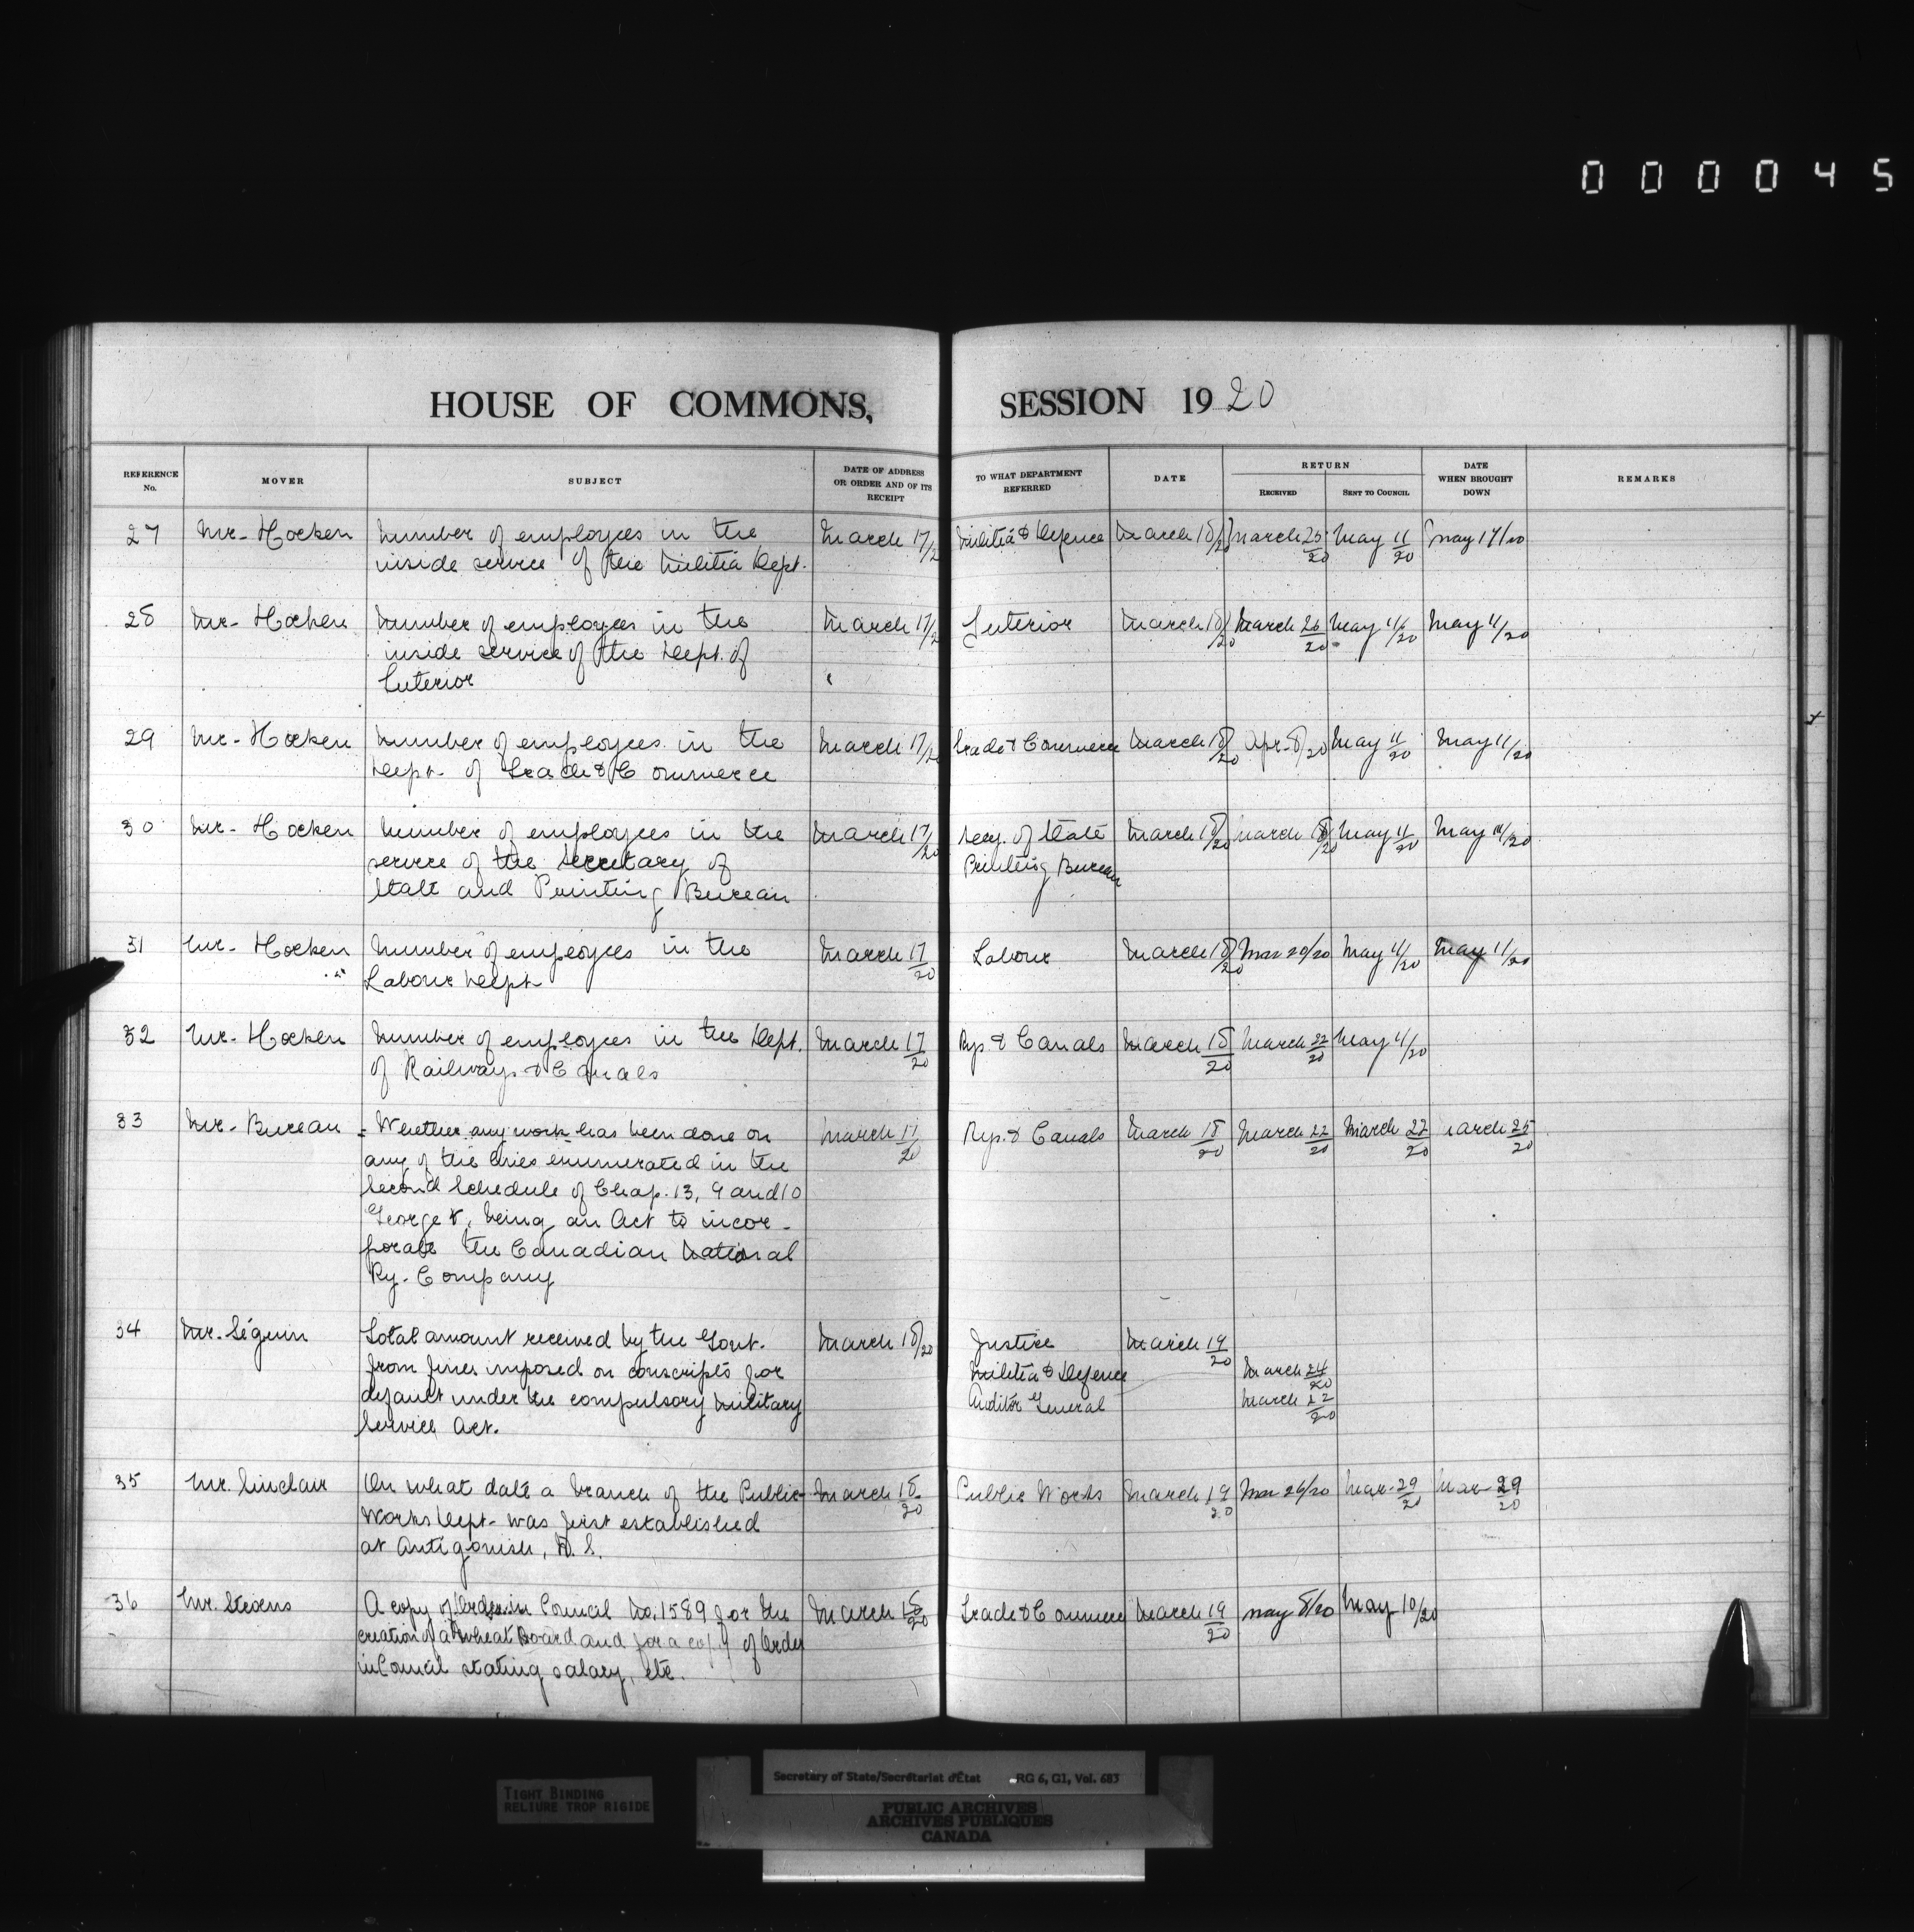 000045
HOUSE OF COMMONS, SESSION 1920
REFERENCE No. MOVER SUBJECT DATE OF ADDRESS OR ORDER AND OF ITS RECEIPT TO WHAT DEPARTMENT REFERRED DATE RETURN RECEIVED SENT TO COUNCIL DATE WHEN BROUGHT DOWN REMARKS
27 Mr. Hocken Number of employees in the March 17/20 Militia & Defence March 18/20 March 25/20 May 11/20 May 17/20
inside service of the Militia Dept.
28 Mr. Hocken Number of employees in the March 17/20 Interior March 18/20 March 26/20 May 11/20 May 11/20
inside service of the Dept. of
Interior
29 Mr. Hocken Number of employees in the March 17/20 Trade & Commerce March 18/20 Apr. 8/20 May 11/20 May 11/20
Dept. of Trade & Commerce
30 Mr. Hocken Number of employees in the March 17/20 Secy. of State March 18/20 March 18/20 May 11/20 May 11/20
service of the Secretary of Printing Bureau
State and Printing Bureau
31 Mr. Hocken Number of employees in the March 17/20 Labour March 18/20 Mar 20/20 May 11/20 May 11/20
Labour Dept
32 Mr. Hocken Number of employees in the Dept. March 17/20 Rys. & Canals March 18/20 March 22/20 May 11/20
of Railways & Canals
33 Mr. Bureau Whether any work has been done on March 17/20 Rys. & Canals March 18/20 March 22/20 March 22/20 March 25/20
any of the lines enumerated in the
Second Schedule of Chap. 13, 9 and 10
George V, being an Act to incor-
porate the Canadian National
Ry. Company
34 Mr. Séguin Total amount received by the Govt. March 18/20 Justice March 19/20
from fines imposed on conscripts for Militia & Defence March 24/20
default under the compulsory Military Auditor General March 22/20
Service Act.
35 Mr. Sinclair On what date a branch of the Public March 18/20 Public Works March 19/20 Mar 26/20 Mar. 29/20 Mar 29/20
Works Dept. was first established
at Antigonish, N. S.
36 Mr. Stevens A copy of Order in Council No. 1589 for the March 18/20 Trade & Commerce March 19/20 May 8/20 May 10/20
creation of a Wheat Board and for a copy of Order
in Council stating salary, etc.
TIGHT BINDING
RELIURE TROP RIGIDE
Secretary of State/Secrétariat d'État RG 6, G1, Vol. 683
PUBLIC ARCHIVES
ARCHIVES PUBLIQUES
CANADA